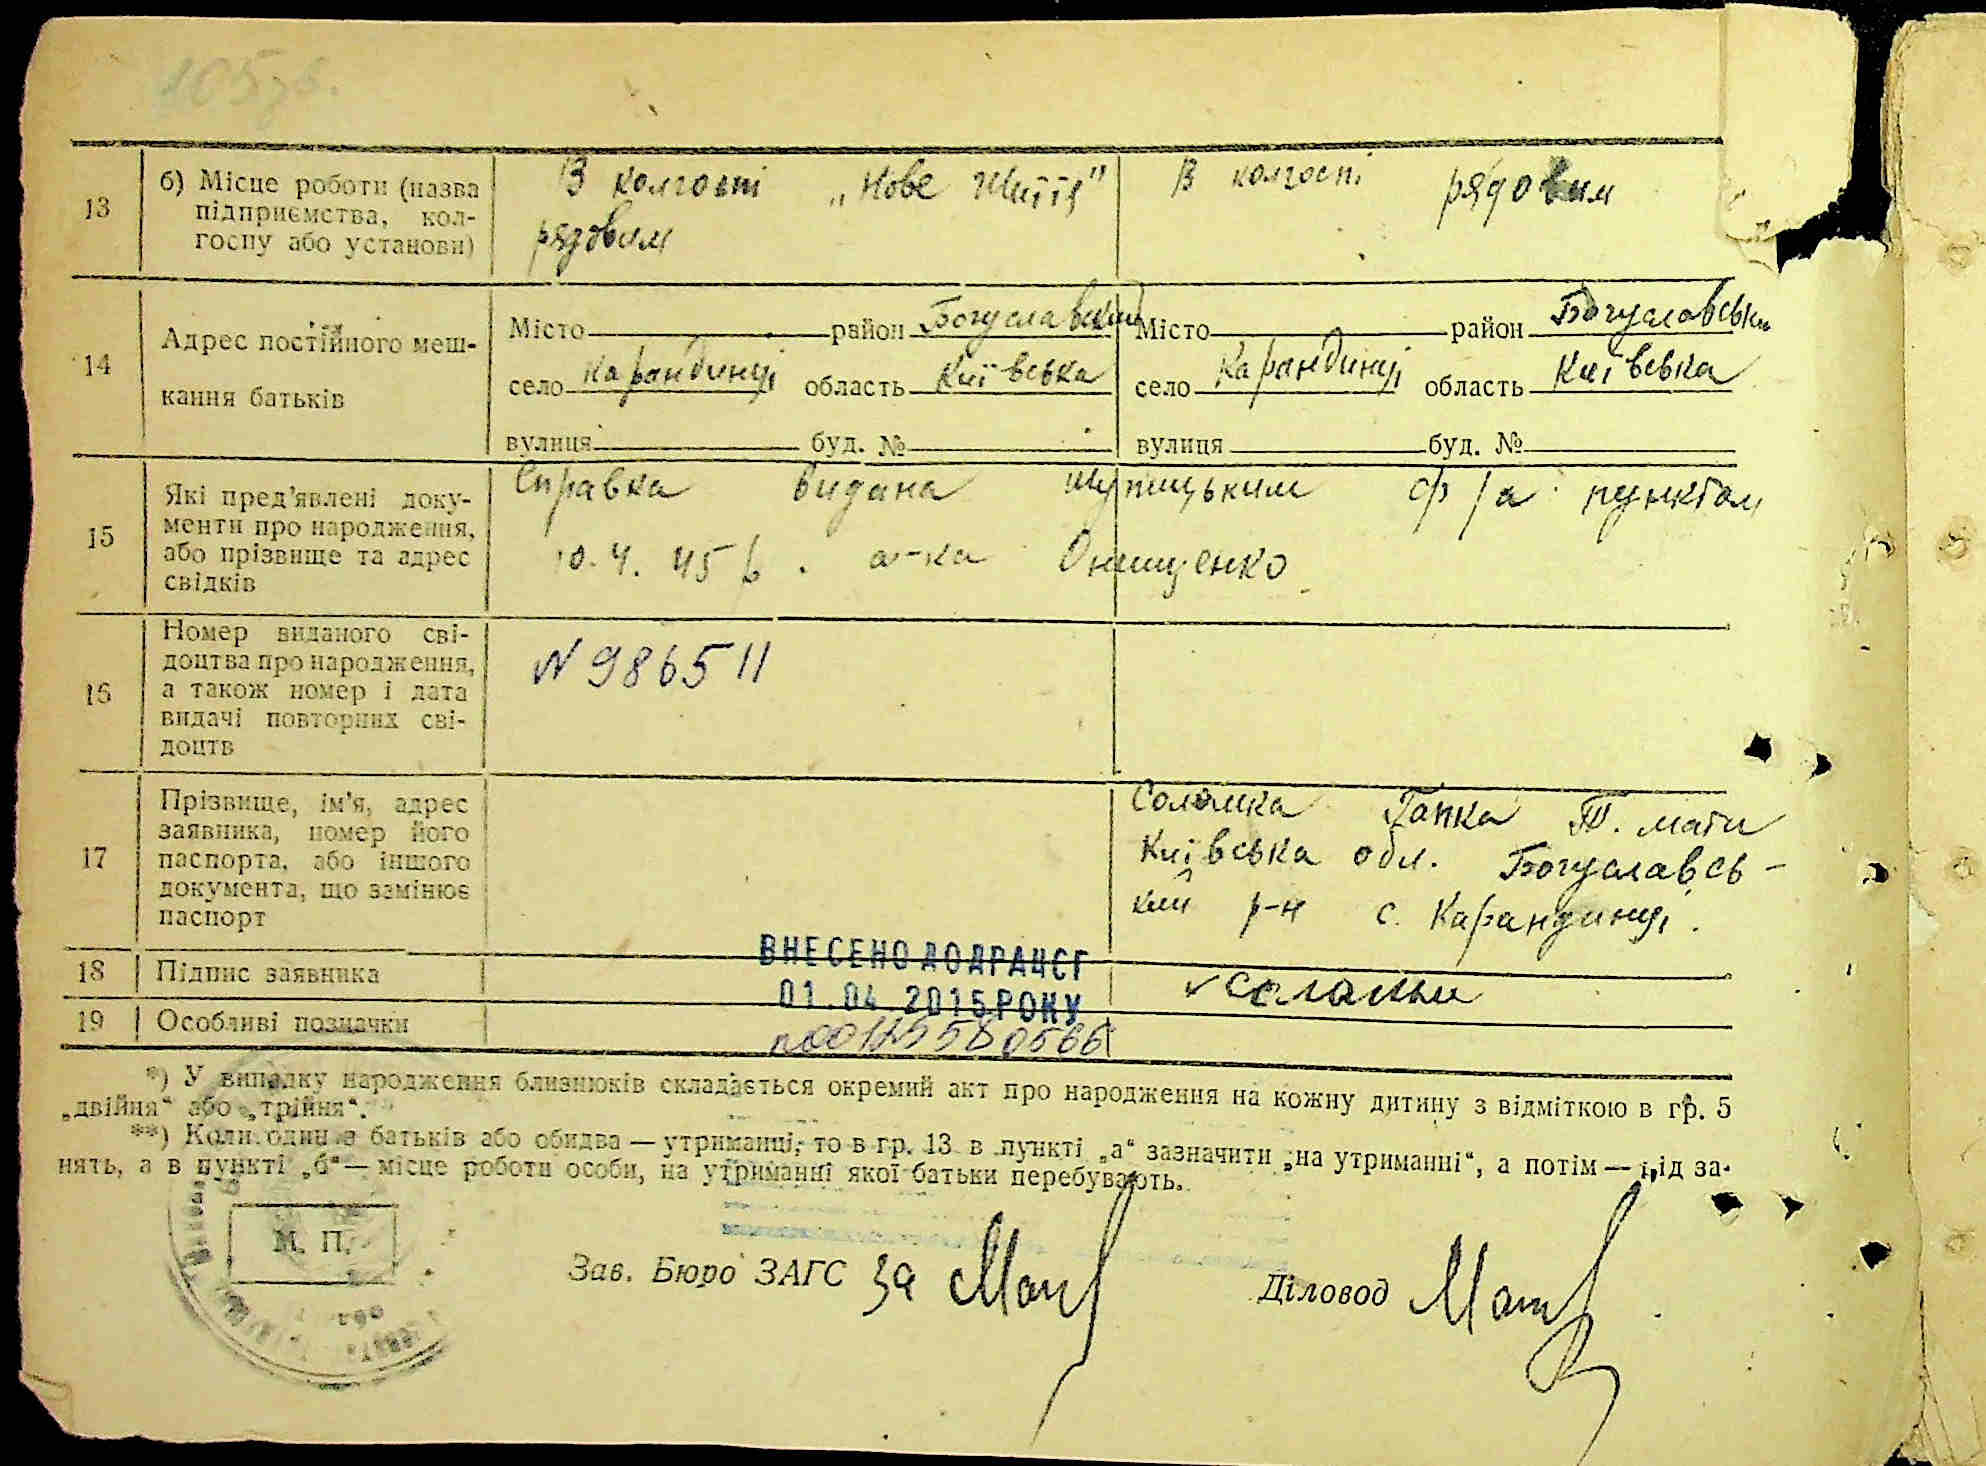 105 зв.
13
б) Місце роботи (назва
підприємства, кол-
госпу або установи)
В колгоспі „Нове життя"
рядовим
В колгоспі рядовим
14
Адрес постійного меш-
кання батьків
Місто район Богуславский
село Карандинці область Київська
вулиця буд. №
Місто район Богуславськи
село Карандинці область Київська
вулиця буд. №
15
Які пред'явлені доку-
менти про народження,
або прізвище та адрес
свідків
Справка видана ф/а пунктом
10.4.45 р. а-ка Онищенко
16
Номер виданого сві-
доцтва про народження,
а також номер і дата
видачі повторних сві-
доцтв
N 986511
17
Прізвище, ім'я, адрес
заявника, номер його
паспорта, або іншого
документа, що замінює
паспорт
Соломка Гапка Т. мати
Київська обл. Богуславсь-
кий р-н с. Карандинці.
18
Підпис заявника
19
Особливі позначки
ВНЕСЕНО ДО ДРАЦСГ
01.04.2015 РОКУ
*) У випадку народження близнюків складається окремий акт про народження на кожну дитину з відміткою в гр. 5
„двійня" або „трійня".
**) Коли один з батьків або обидва — утриманці, то в гр. 13 в пункті „а" зазначити „на утриманні", а потім — рід за-
нять, а в пункті „б" — місце роботи особи, на утриманні якої батьки перебувають.
М. П.
Зав. Бюро ЗАГС за
Діловод